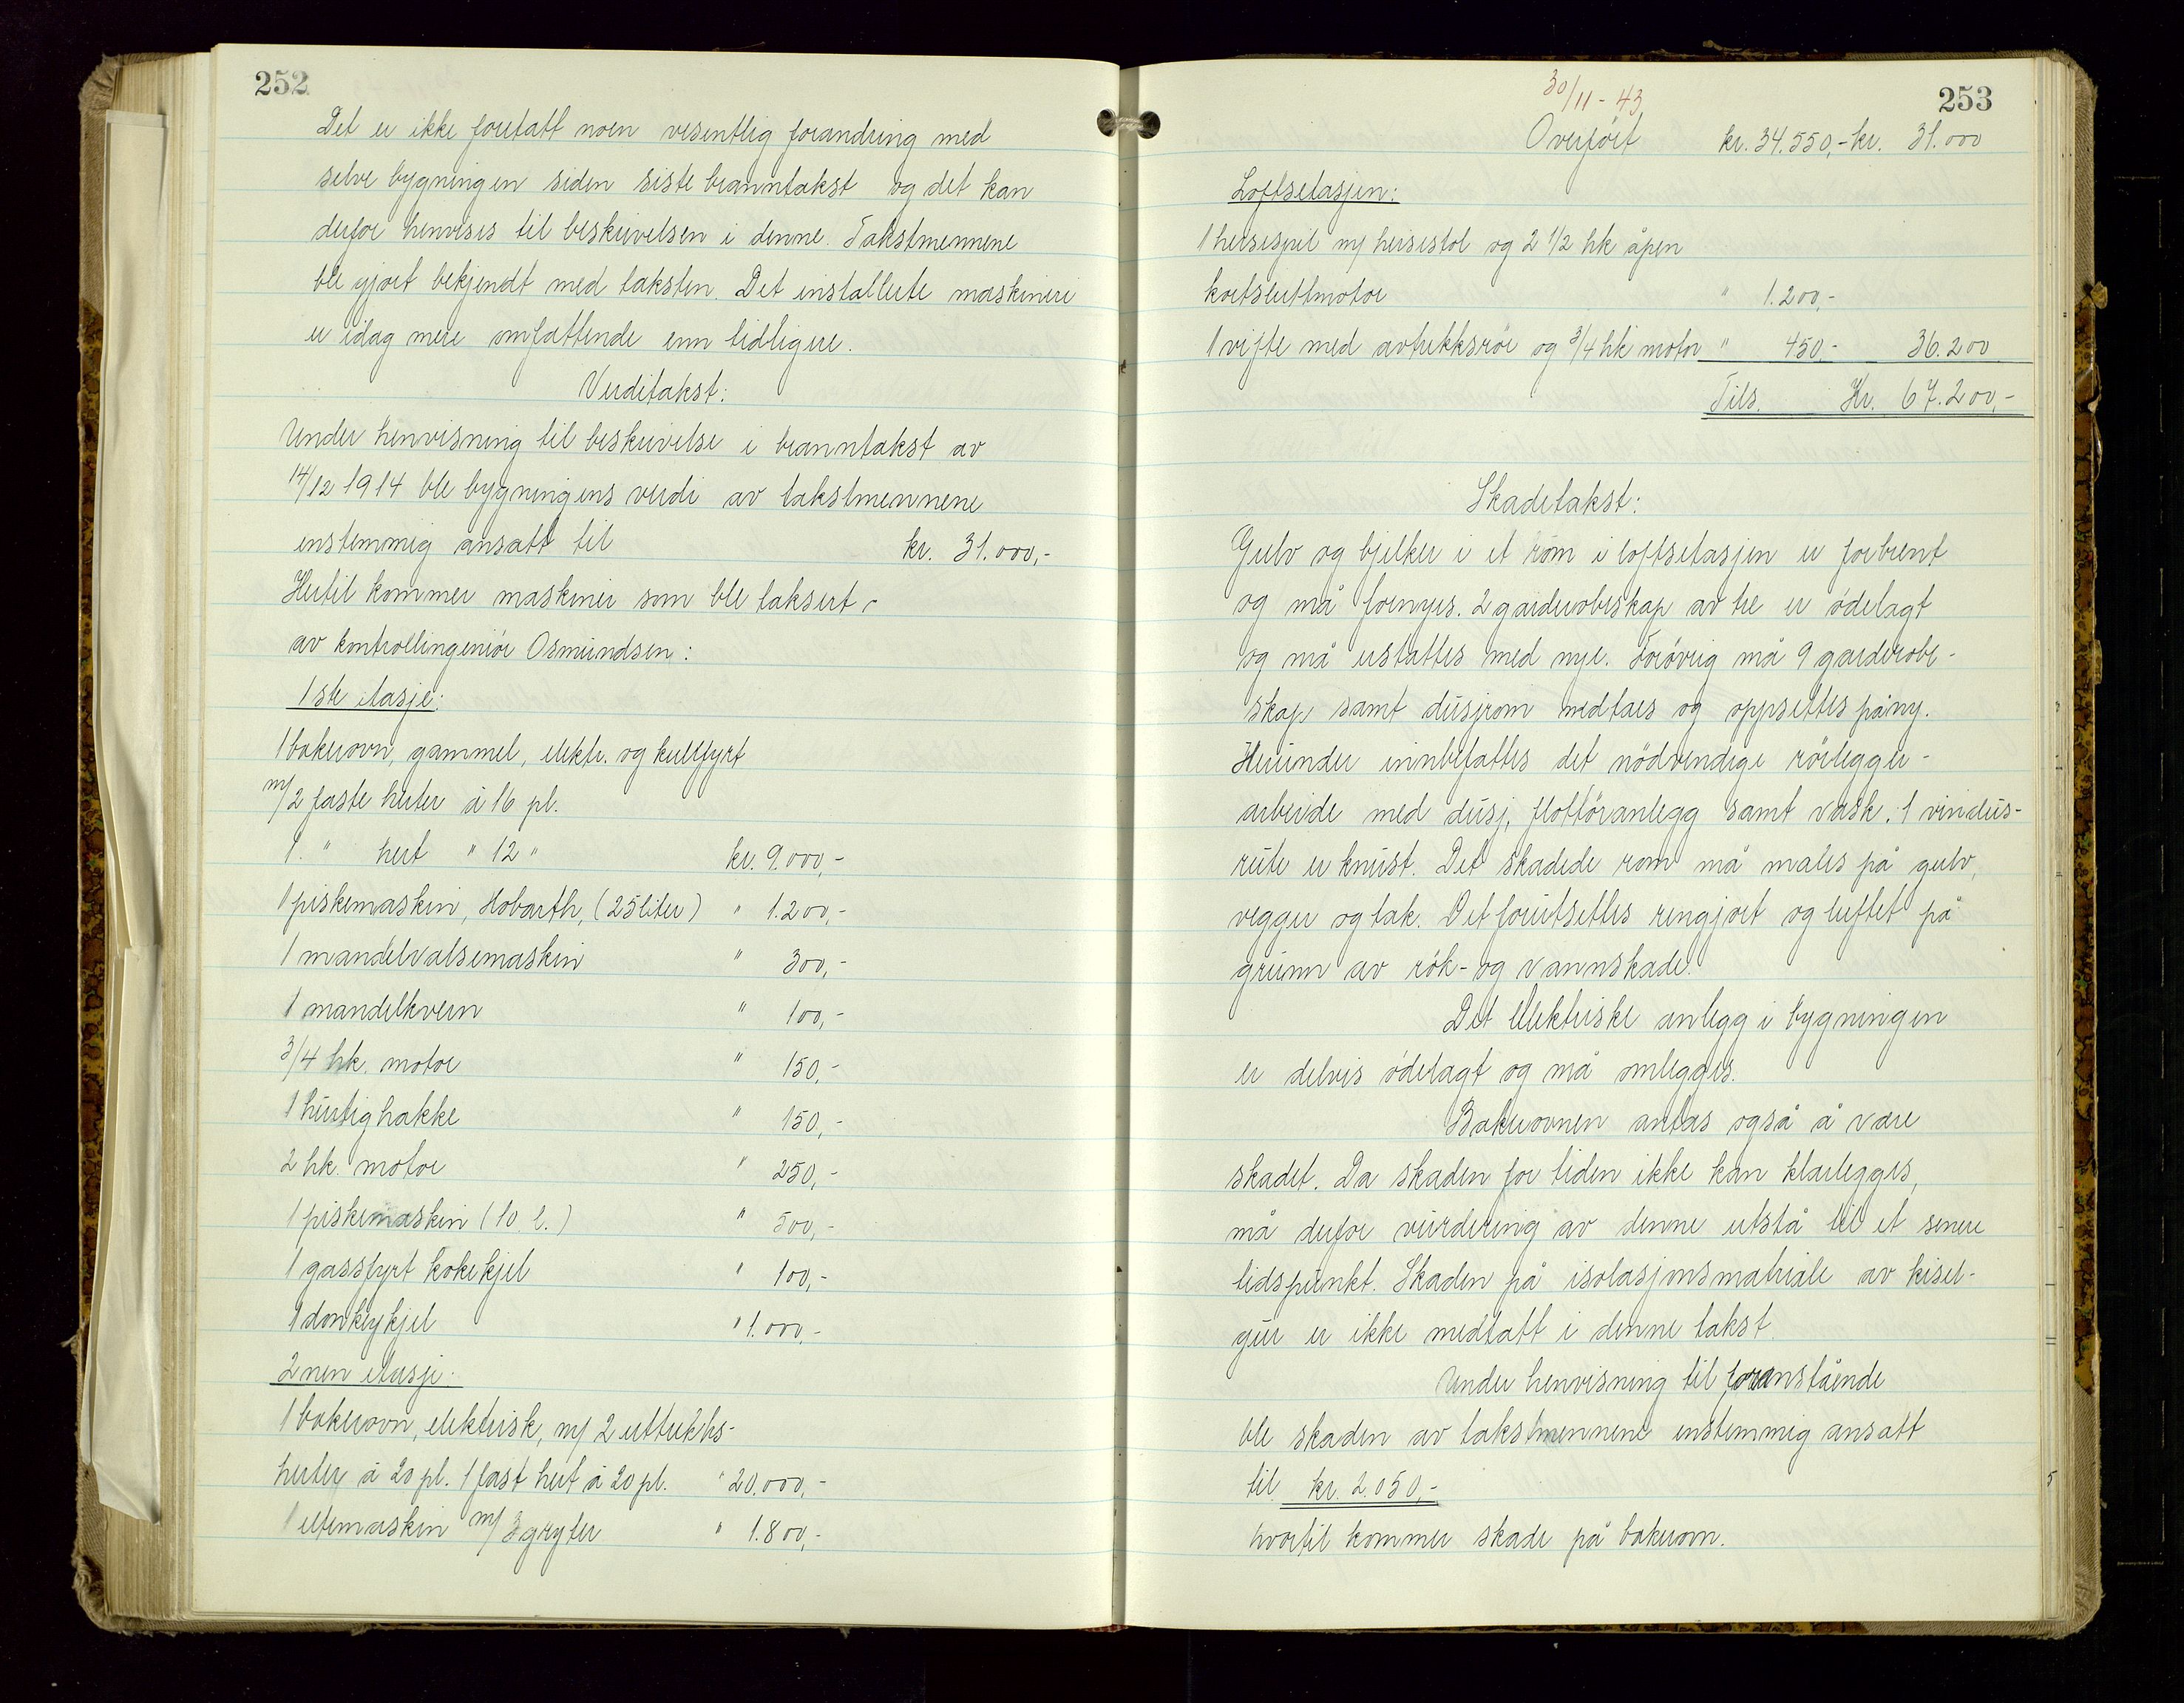 252
Det er ikke foretatt noen vesentlig forandring med
selve bygningen siden siste branntakst og det kan
derfor henvises til beskrivelsen i denne. Takstmennene
ble gjort bekjendt med taksten. Det installerte maskineri
er idag mere omfattende enn tidligere.
Verditakst:
Under henvisning til beskrivelse i branntakst av
14/12 1914 ble bygningens verdi av takstmennene
enstemmig ansatt til kr. 31.000,-
Hertil kommer maskiner som ble taksert
av kontrollingeniør Osmundsen:
1ste etasje:
1 bakerovn, gammel, elektr. og kullfyrt
m/2 faste herter à 16 pl.
1 " hert " 12 " kr. 9.000,-
1 piskemaskin, Hobarth, (25 liter) " 1.200,-
1 mandelvalsemaskin " 300,-
1 mandelkvern " 100,-
3/4 hk. motor " 150,-
1 hurtighakke " 150,-
2 hk. motor " 250,-
1 piskemaskin (10 l.) " 500,-
1 gassfyrt kokekjel " 100,-
1 donkykjel " 1.000,-
2nen etasje:
1 bakerovn, elektrisk, m/ 2 uttrekks-
herter à 20 pl. 1 fast hert à 20 pl. " 20.000,-
1 eltemaskin m/ 3 gryter " 1.800,-
30/11-43
253
Overført kr. 34.550,- kr. 31.000
Loftsetasjen:
1 heisespil m/ heisestol og 2 1/2 hk åpen
kortsluttmotor " 1.200,-
1 vifte med avtrekksrør og 3/4 hk motor " 450,- 36.200
Tils. Kr. 67.200,-
Skadetakst:
Gulv og bjelker i et rom i loftsetasjen er forbrent
og må fornyes. 2 garderobeskap av tre er ødelagt
og må erstattes med nye. Forøvrig må 9 garderobe-
skap samt dusjrom nedtaes og oppsettes påny.
Herunder innbefattes det nødvendige rørlegger-
arbeide med dusj, flottøranlegg samt vask. 1 vindus-
rute er knust. Det skadede rom må males på gulv,
vegger og tak. Det forutsettes rengjort og luftet på
grunn av røk- og vannskade.
Det elektriske anlegg i bygningen
er delvis ødelagt og må omlegges.
Bakerovnen antas også å være
skadet. Da skaden for tiden ikke kan klarlegges,
må derfor vurdering av denne utstå til et senere
tidspunkt. Skaden på isolasjonsmateriale av kisel-
gur er ikke medtatt i denne takst.
Under henvisning til foranstående
ble skaden av takstmennene enstemmig ansatt
til kr. 2.050,-
hvortil kommer skade på bakerovn.